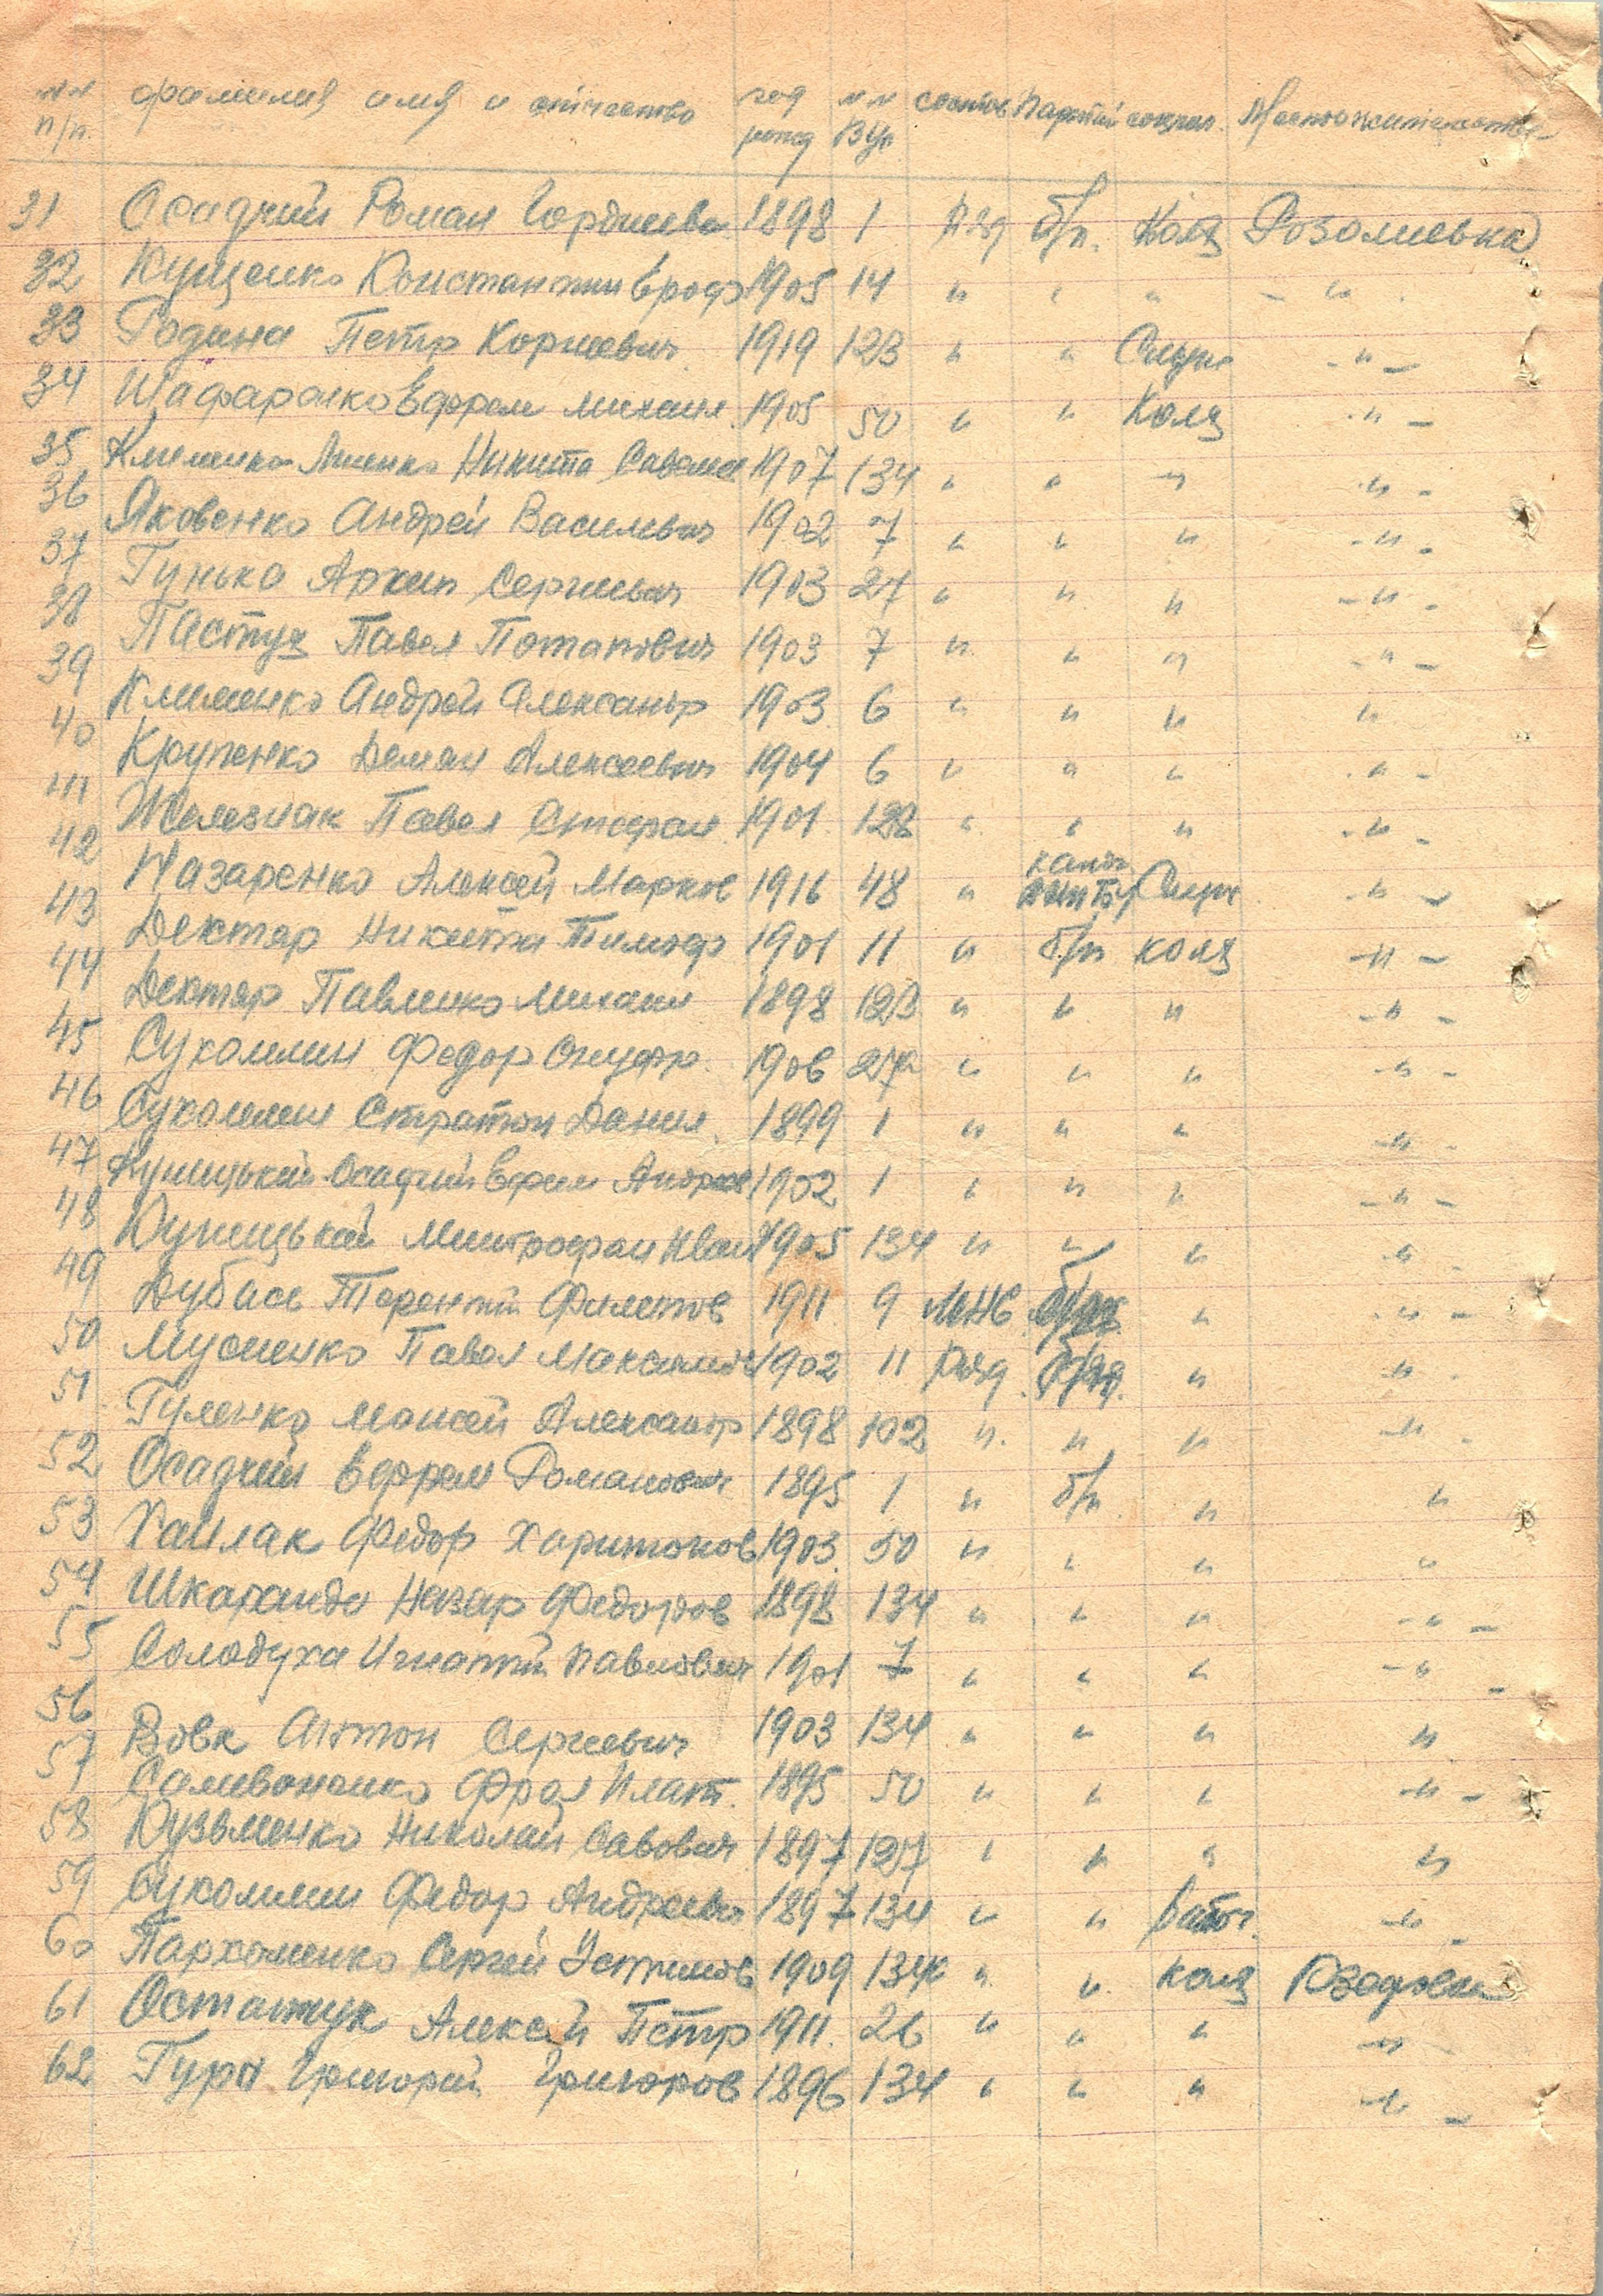 №№ фамилия имя и отчество год №№ состов Партий социал. Местожительство
п/п. рожд ВУС
31 Осадчий Роман Гордиевич 1898 1 ряд б/п. Колх Розолиевка
32 Куценко Константин Ероф 1905 14 " " " - " -
33 Година Петр Корнеевич 1919 123 " " Служ - " -
34 Шафаренко Ефрем Михаил 1905 50 " " Колх - " -
35 Клименко Никита Савел 1907 134 " " " - " -
36 Яковенко Андрей Василевич 1902 7 " " " - " -
37 Гунько Архип Сергиевич 1903 27 " " " - " -
38 Пастух Павел Потапович 1903 7 " " " - " -
39 Клименко Андрей Александр 1903 6 " " " "
40 Крупенко Демян Алексеевич 1904 6 " " " - " -
41 Железнак Павел Стефан 1901 128 " " " - " -
42 Назаренко Алексей Марков 1916 48 " канд. Служ - " -
43 Дектяр Никита Тимоф 1901 11 " б/п колх - " -
44 Дектяр Павленко Михаил 1898 123 " " " - " -
45 Сухомлин Федор Онуфр. 1906 27 " " " - " -
46 Сухомлин Стратон Данил. 1899 1 " " " - " -
47 Куницький-Осадчий Ефим Андреев 1902 1 " " " - " -
48 Куницький Митрофан Иван 1905 134 " " " - " -
49 Дубась Терентий Филипов 1911 9 МНС " - " -
50 Мусиенко Павел Максимов 1902 11 Ряд " - " -
51 Гуленко Моисей Александр 1898 102 " " " - " -
52 Осадчий Ефрем Романович 1895 1 " б/п " "
53 Хайлак Федор Харитонов 1903 50 " " " "
54 Шкарандо Назар Федоров 1898 134 " " " - " -
55 Солодуха Игнатий Павлович 1901 7 " " " - " -
56 Вовк Антон Сергиевич 1903 134 " " " "
57 Самивоненко Фрол Плат. 1895 50 " " " - " -
58 Кузьменко Николай Савович 1897 127 " " " "
59 Сухомлин Федор Андреевич 1897 134 " " работ. - " -
60 Пархоменко Сергей Устимов 1909 134к " " колх
61 Остапчук Алексей Петр 1911. 26 " " " - " -
62 Гура Григорий Григоров 1896 134 " " " - " -